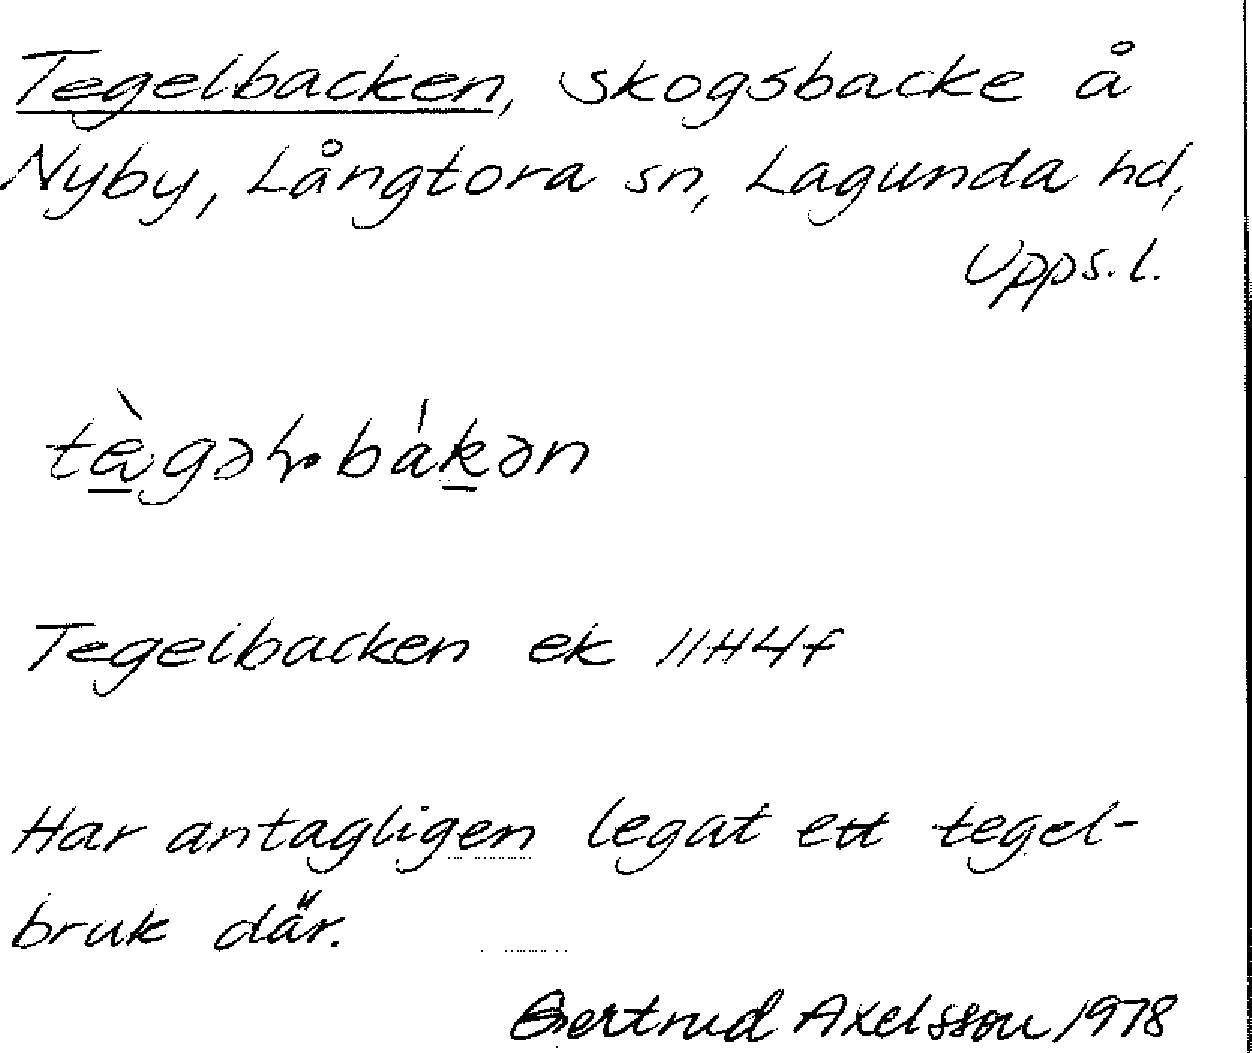 Tegelbacken, skogsbacke å
Nyby, Långtora sn, Lagunda hd,
Upps. l.
Tegelbacken ek 11H4f
Har antagligen legat ett tegel-
bruk där.
Gertrud Axelsson 1978